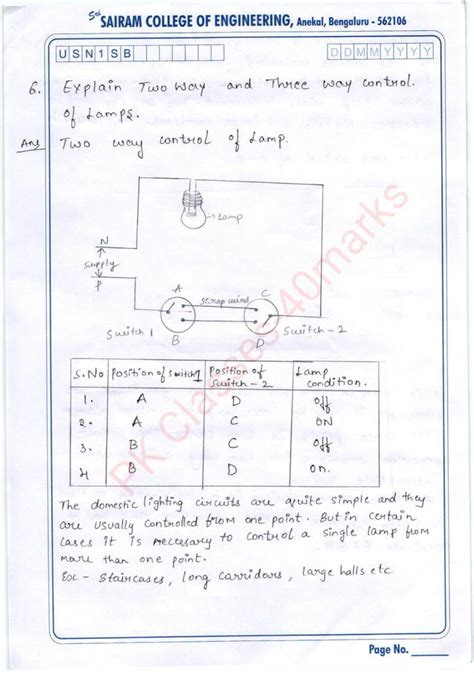 Sri SAIRAM COLLEGE OF ENGINEERING, Anekal, Bengaluru - 562106
USN1SB DDMMYYYY
6. Explain Two way and Three way control
of Lamps.
Ans Two way control of Lamp.
Lamp
N
Supply
P
A strap wire C
Switch 1 B D Switch - 2
S.No Position of switch1 Position of switch - 2 Lamp condition.
1. A D Off
2. A C ON
3. B C Off
4 B D on.
The domestic lighting circuits are quite simple and they
are usually controlled from one point. But in certain
cases it is necessary to control a single lamp from
more than one point.
Ex - Staircases, long carridors, large halls etc
Page No.
PK Classes 40marks